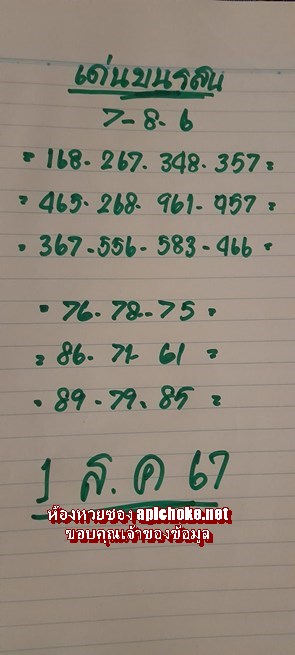 เด่นบนรลน
7-8-6
= 168- 267. 348- 357=
= 465- 268- 961- 957=
= 367-556- 583-466=
= 76-78-75 =
= 86- 71- 61 =
= 89-79- 85 =
1 ส.ค 67
ห้องหวยซอง aplchoke.net
ขอบคุณเจ้าของข้อมูล